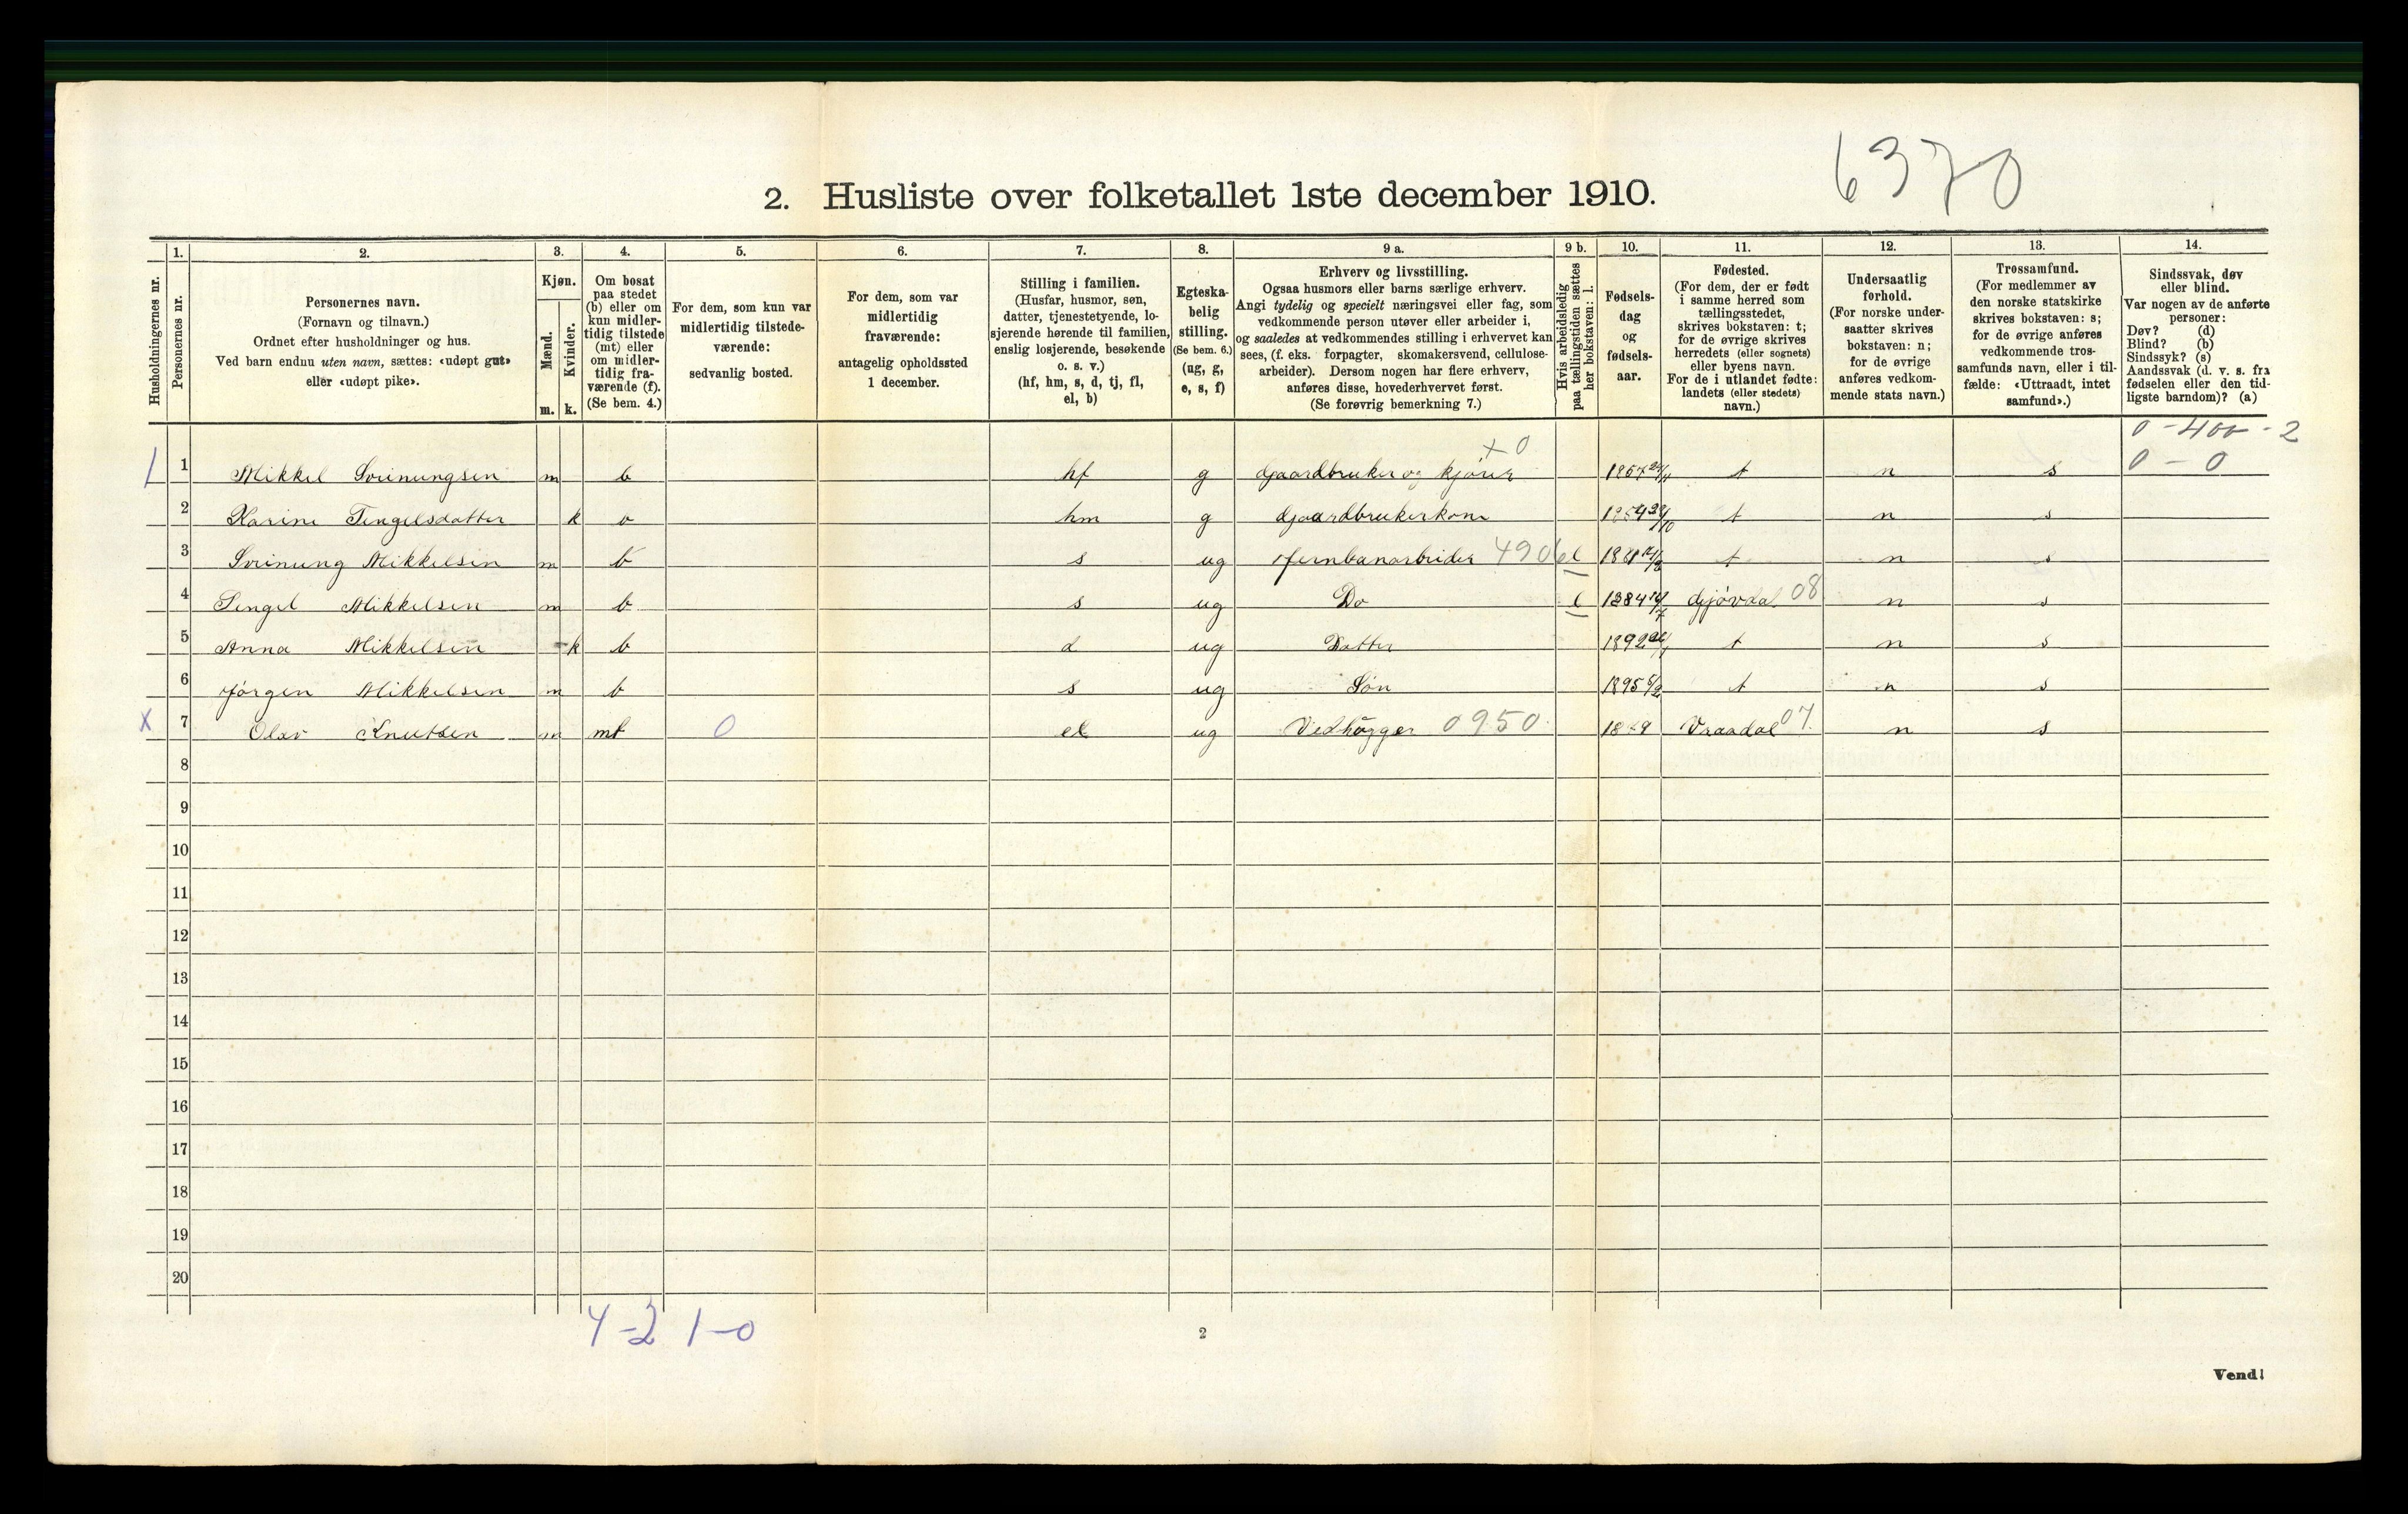 6370
2. Husliste over folketallet 1ste december 1910.
Husholdningernes nr.
1. Personernes nr.
2. Personernes navn.
(Fornavn og tilnavn.)
Ordnet efter husholdninger og hus.
Ved barn endnu uten navn, sættes: «udøpt gut»
eller «udøpt pike».
3. Kjøn.
Mænd. m.
Kvinder. k.
4. Om bosat
paa stedet
(b) eller om
kun midler-
tidig tilstede
(mt) eller
om midler-
tidig fra-
værende (f).
(Se bem. 4.)
5. For dem, som kun var
midlertidig tilstede-
værende:
sedvanlig bosted.
6. For dem, som var
midlertidig
fraværende:
antagelig opholdssted
1 december.
7. Stilling i familien.
(Husfar, husmor, søn,
datter, tjenestetyende, lo-
sjerende hørende til familien,
enslig losjerende, besøkende
o. s. v.)
(hf, hm, s, d, tj, fl,
el, b)
8. Egteska-
belig
stilling.
(Se bem. 6.)
(ug, g,
e, s, f)
9 a. Erhverv og livsstilling.
Ogsaa husmors eller barns særlige erhverv.
Angi tydelig og specielt næringsvei eller fag, som
vedkommende person utøver eller arbeider i,
og saaledes at vedkommendes stilling i erhvervet kan
sees, (f. eks. forpagter, skomakersvend, cellulose-
arbeider). Dersom nogen har flere erhverv,
anføres disse, hovederhvervet først.
(Se forøvrig bemerkning 7.)
9 b. Hvis arbeidsledig
paa tællingstiden sættes
her bokstaven: l.
10. Fødsels-
dag
og
fødsels-
aar.
11. Fødested.
(For dem, der er født
i samme herred som
tællingsstedet,
skrives bokstaven: t;
for de øvrige skrives
herredets (eller sognets)
eller byens navn.
For de i utlandet fødte:
landets (eller stedets)
navn.)
12. Undersaatlig
forhold.
(For norske under-
saatter skrives
bokstaven: n;
for de øvrige
anføres vedkom-
mende stats navn.)
13. Trossamfund.
(For medlemmer av
den norske statskirke
skrives bokstaven: s;
for de øvrige anføres
vedkommende tros-
samfunds navn, eller i til-
fælde: «Uttraadt, intet
samfund».)
14. Sindssvak, døv
eller blind.
Var nogen av de anførte
personer:
Døv? (d)
Blind? (b)
Sindssyk? (s)
Aandssvak (d. v. s. fra
fødselen eller den tid-
ligste barndom)? (a)
0 - 400 - 2
+ 0
1 Mikkel Sveinungsen m b hf g Gaardbruker og kjører 1857 t n s 0 - 0
2 Karine Tengelsdatter k b hm g Gjaardbrukerkone 1854 t n s
3 Sveinung Mikkelsen m b s ug Jernbanarbeider 490 l 1881 t n s
4 Tengel Mikkelsen m b s ug Do l 1884 Gjövdal 08 n s
5 Anna Mikkelsen k b d ug Datter 1892 t n s
6 Jörgen Mikkelsen m b s ug Sön 1895 t n s
x 7 Olav Knutsen m mt 0 el ug Vedhögger 0950 Vraadal 07 n s
8
9
10
11
12
13
14
15
16
17
18
19
20
4-2 1-0
2
Vend!